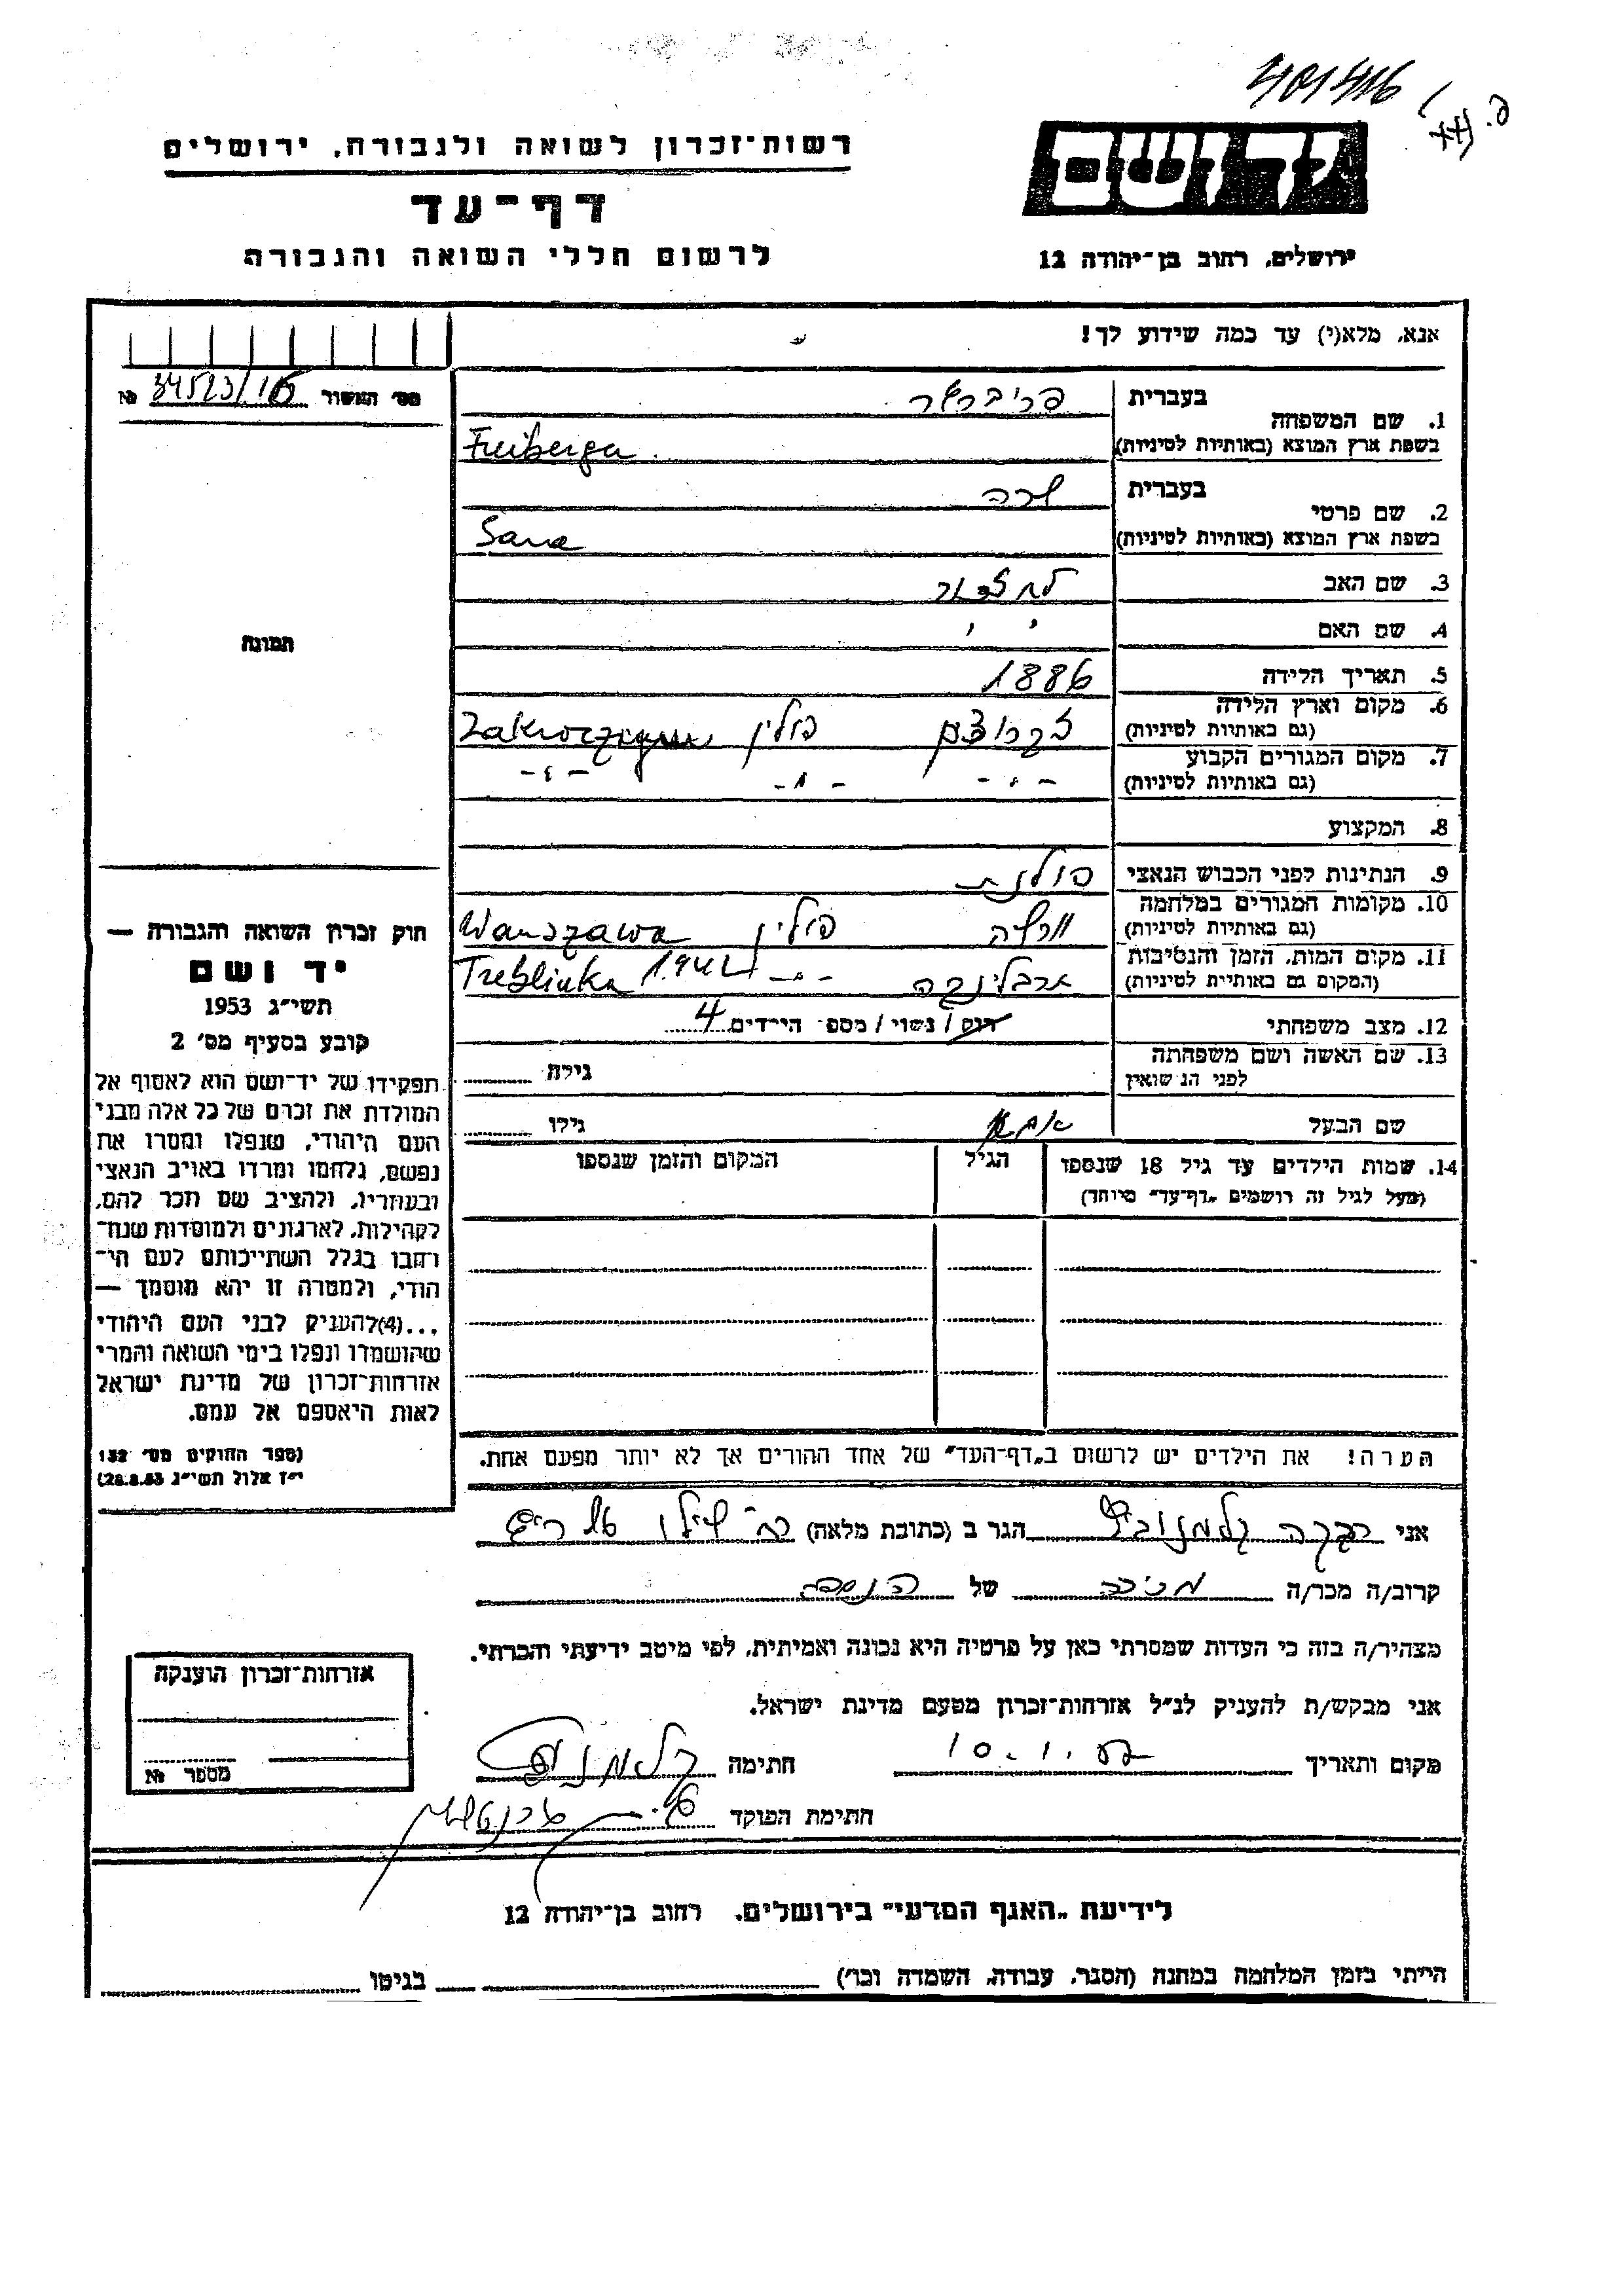 401416
ידושם
רשות־זכרון לשואה ולגבורה, ירושלים
דף־עד
לרשום חללי השואה והגבורה
ירושלים, רחוב בן־יהודה 12
אנא, מלא(י) עד כמה שידוע לך!
מס' האשור 34523/16 №
1. שם המשפחה בעברית
בשפת ארץ המוצא (באותיות לטיניות) Freiberga
2. שם פרטי בעברית שרה
בשפת ארץ המוצא (באותיות לטיניות) Sara
3. שם האב
4. שם האם
תמונה
5. תאריך הלידה 1886
6. מקום וארץ הלידה פולין
(גם באותיות לטיניות)
7. מקום המגורים הקבוע
(גם באותיות לטיניות)
8. המקצוע
9. הנתינות לפני הכבוש הנאצי פולנית
10. מקומות המגורים במלחמה ורשה פולין Warszawa
(גם באותיות לטיניות)
11. מקום המות, הזמן והנסיבות טרבלינקה 1942 Treblinka
(המקום גם באותיות לטיניות)
12. מצב משפחתי רוק / נשוי / מספ' הילדים 4
13. שם האשה ושם משפחתה גילה
לפני הנישואין
שם הבעל גילו
14. שמות הילדים עד גיל 18 שנספו הגיל המקום והזמן שנספו
(מעל לגיל זה רושמים „דף־עד" מיוחד)
הערה! את הילדים יש לרשום ב„דף־העד" של אחד ההורים אך לא יותר מפעם אחת.
חוק זכרון השואה והגבורה —
יד ושם
תשי"ג 1953
קובע בסעיף מס' 2
תפקידו של יד־ושם הוא לאסוף אל
המולדת את זכרם של כל אלה מבני
העם היהודי, שנפלו ומסרו את
נפשם, נלחמו ומרדו באויב הנאצי
ובעוזריו, ולהציב שם וזכר להם,
לקהילות, לארגונים ולמוסדות שנח־
רבו בגלל השתייכותם לעם הי־
הודי, ולמטרה זו יהא מוסמך —
...(4) להעניק לבני העם היהודי
שהושמדו ונפלו בימי השואה והמרי
אזרחות־זכרון של מדינת ישראל
לאות היאספם אל עמם.
(ספר החוקים מס' 132
י"ז אלול תשי"ג 28.8.53)
אני רבקה קלמנוביץ הגר ב (כתובת מלאה)
קרוב/ה מכר/ה מכירה של הנספה
מצהיר/ה בזה כי העדות שמסרתי כאן על פרטיה היא נכונה ואמיתית, לפי מיטב ידיעתי והכרתי.
אני מבקש/ת להעניק לנ"ל אזרחות־זכרון מטעם מדינת ישראל.
מקום ותאריך חתימה
חתימת הפוקד
אזרחות־זכרון הוענקה
מספר №
לידיעת „האגף המדעי" בירושלים, רחוב בן־יהודה 12
הייתי בזמן המלחמה במחנה (הסגר, עבודה, השמדה וכו') בגיטו